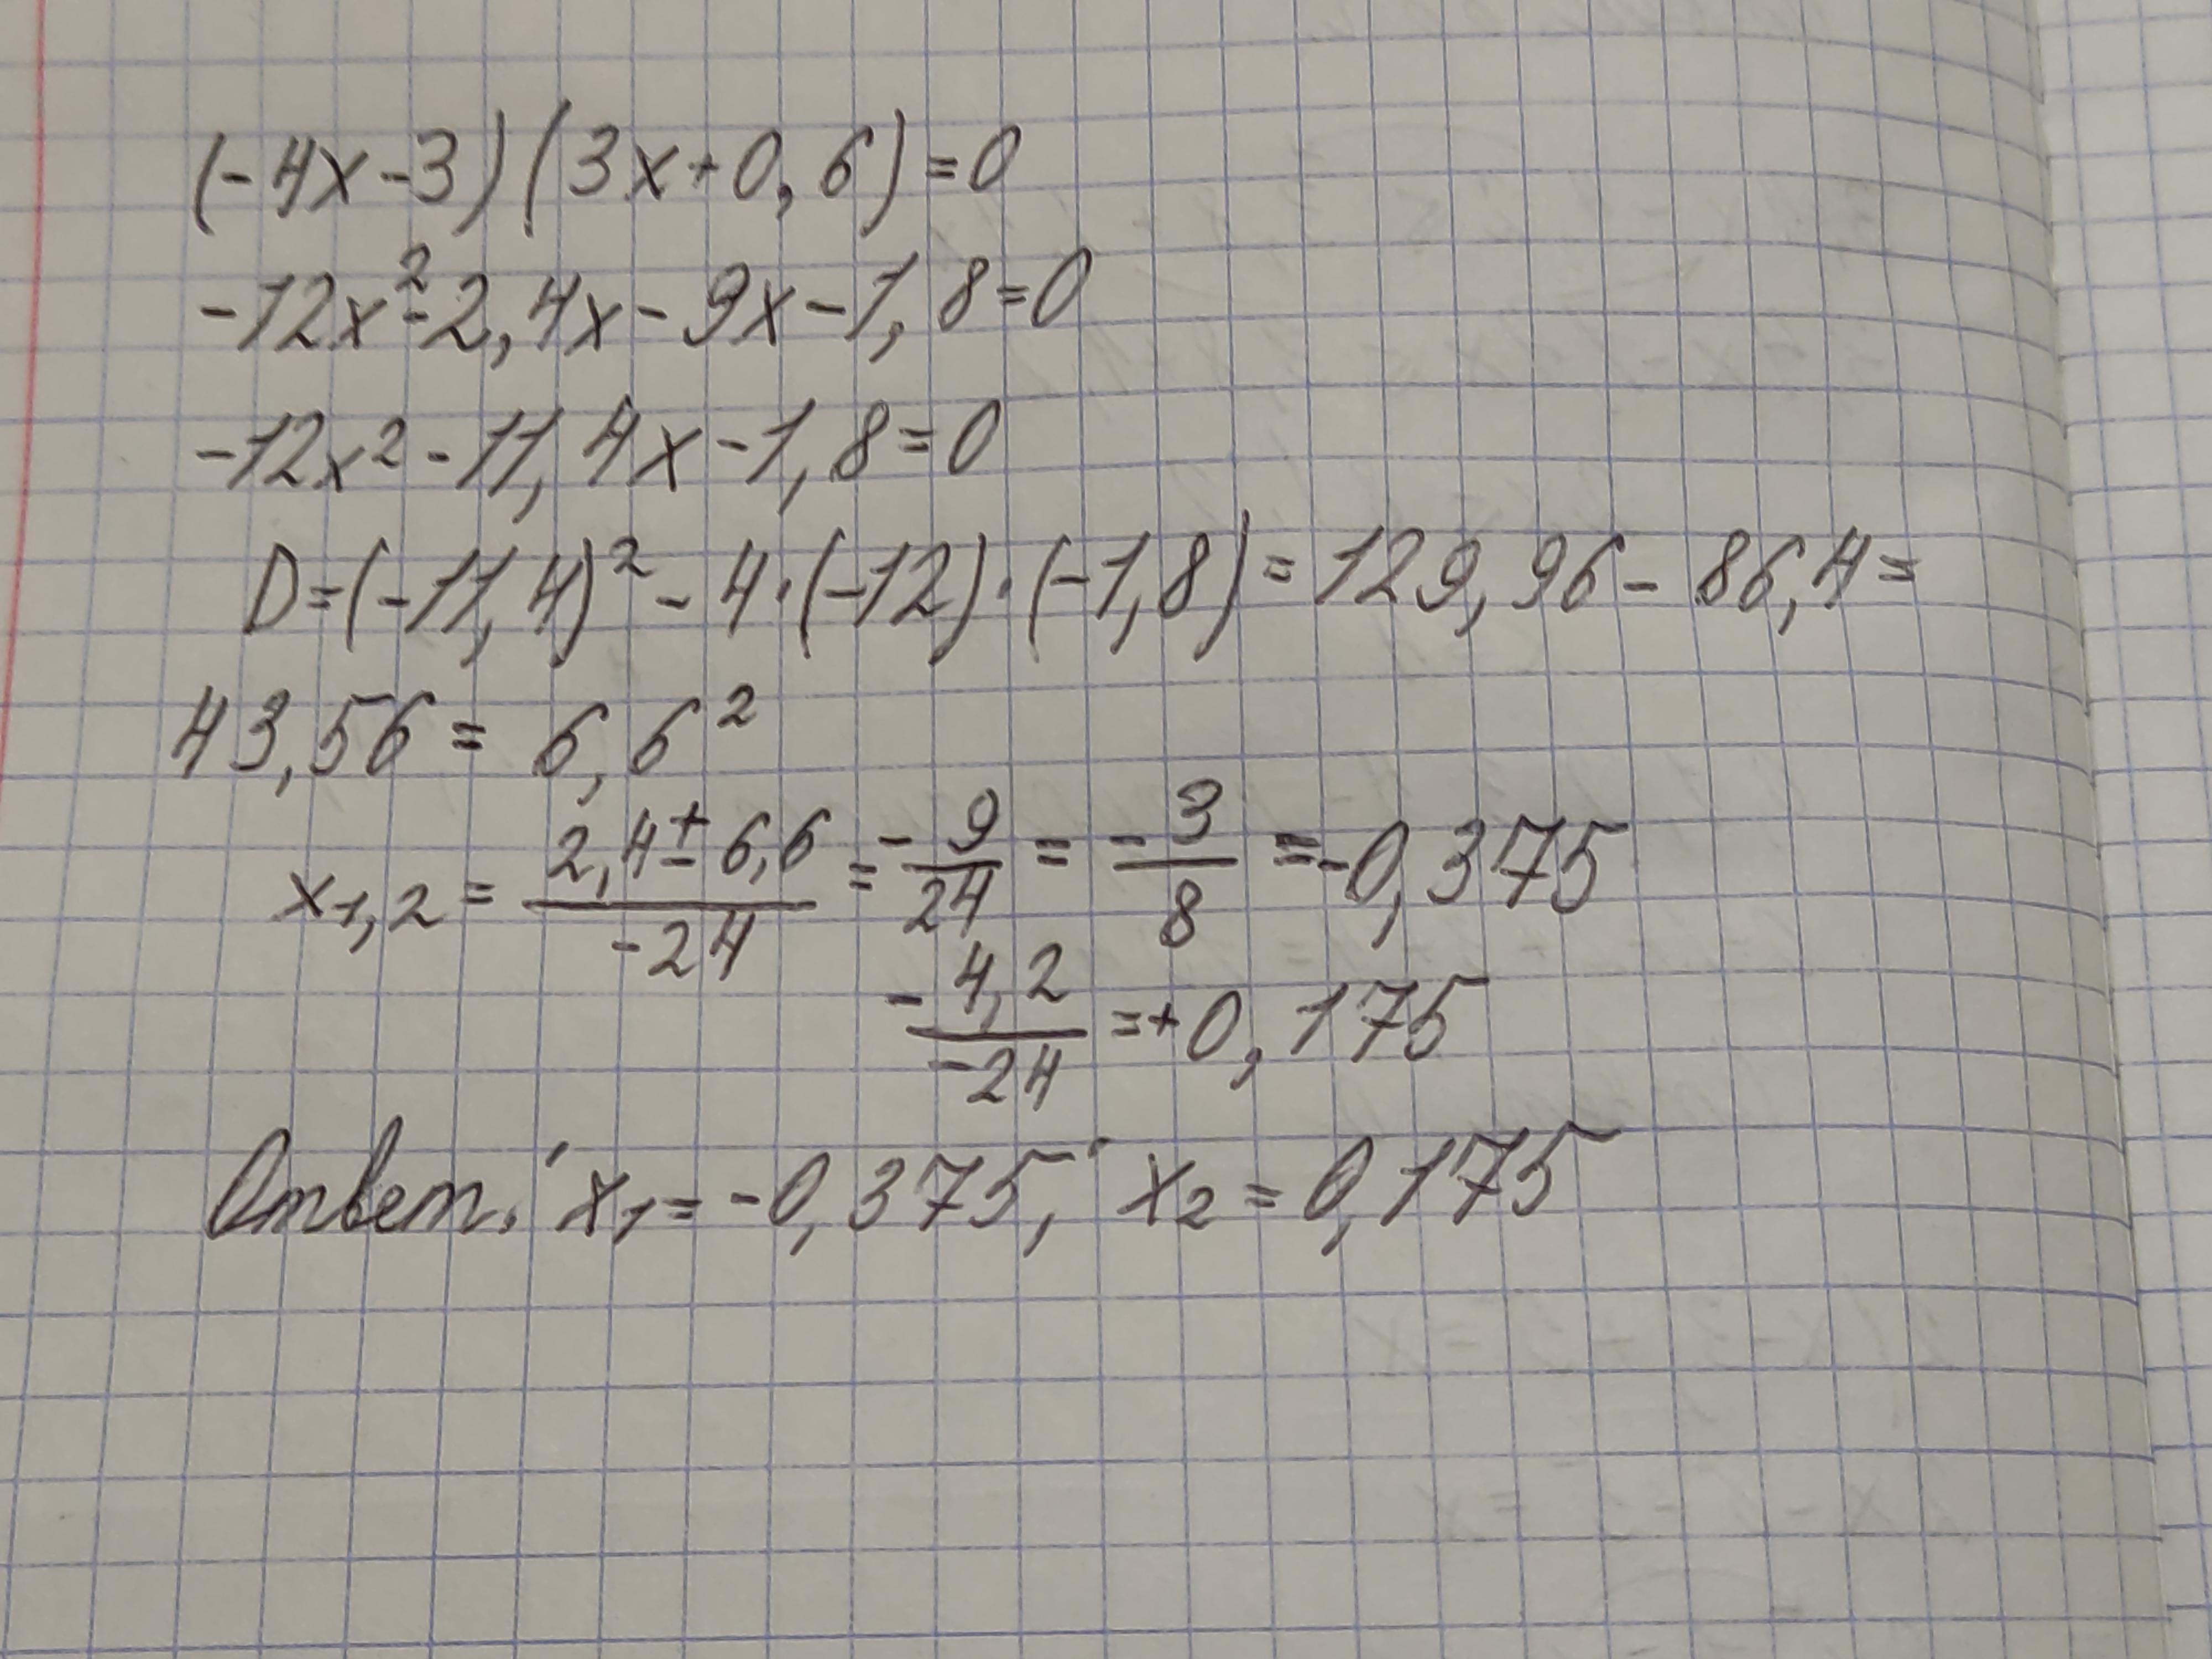 (-4x-3)(3x+0,6)=0
-12x²-2,4x-9x-1,8=0
-12x²-11,4x-1,8=0
D=(-11,4)²-4·(-12)·(-1,8)=129,96-86,4=
43,56=6,6²
x₁,₂=(2,4±6,6)/(-24)=-9/24=-3/8=-0,375
-4,2/-24=+0,175
Ответ: x₁=-0,375; x₂=0,175